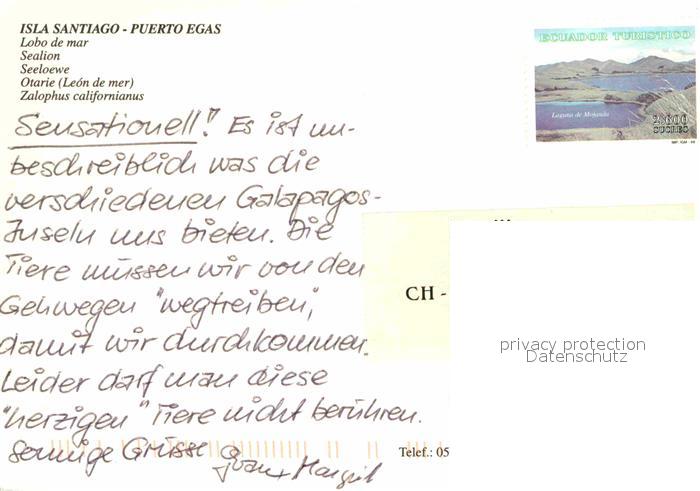 ISLA SANTIAGO - PUERTO EGAS
Lobo de mar
Sealion
Seeloewe
Otarie (León de mer)
Zalophus californianus
ECUADOR TURISTICO
Laguna de Mojanda
SUCRES
Sensationell! Es ist un-
beschreiblich was die
verschiedenen Galapagos-
Inseln uns bieten. Die
Tiere müssen wir von den
Gehwegen "wegtreiben",
damit wir durchkommen.
Leider darf man diese
"herzigen" Tiere nicht berühren.
Sonnige Grüsse
CH -
privacy protection
Datenschutz
Telef.: 05